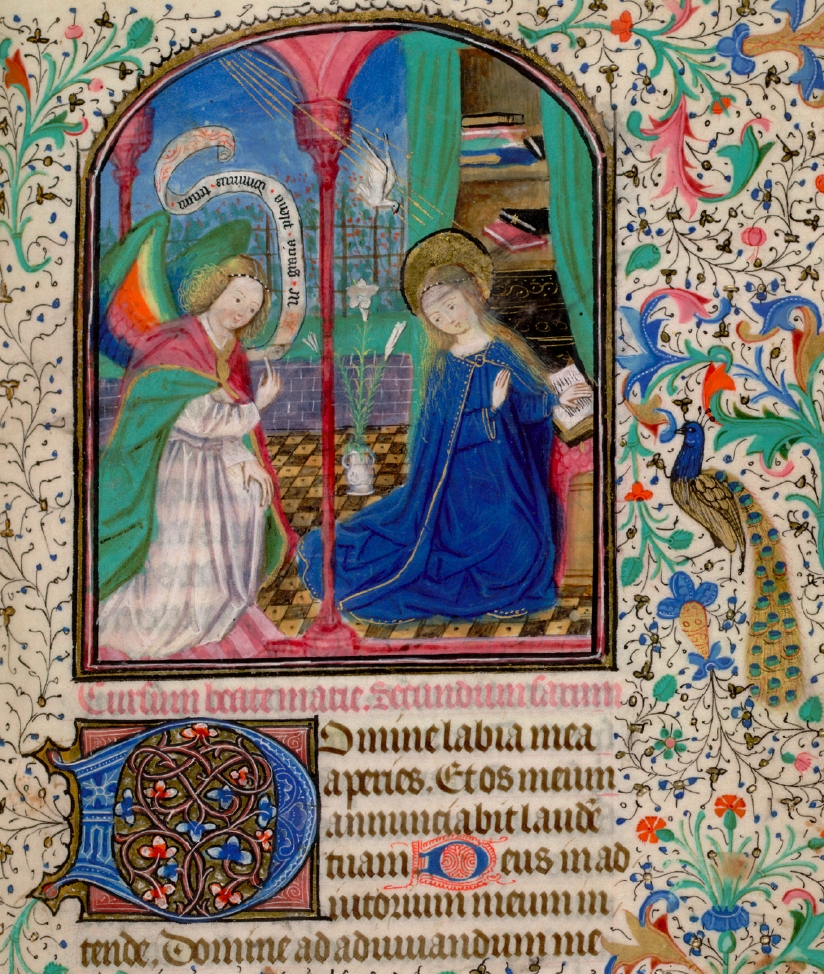 plena · dominus · tecum
Cursum beate marie. Secundum sarum
DOmine labia mea
aperies. Et os meum
annunciabit laudē
tuam Deus in ad
iutorium meum in
tende. Domine ad adiuuandum me